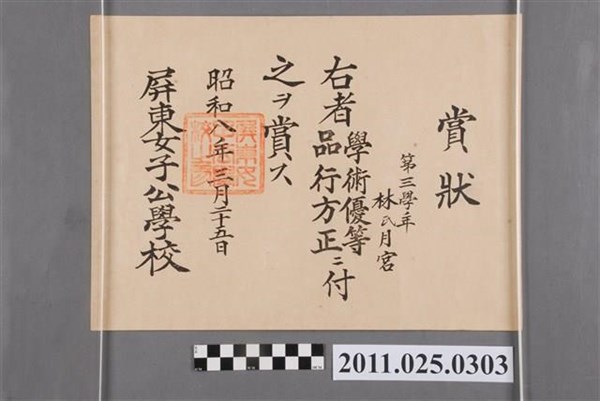 賞狀
第三學年
林氏月宮
右者學術優等
品行方正ニ付
之ヲ賞ス
昭和八年三月二十五日
屏東女子公學校
2011.025.0303